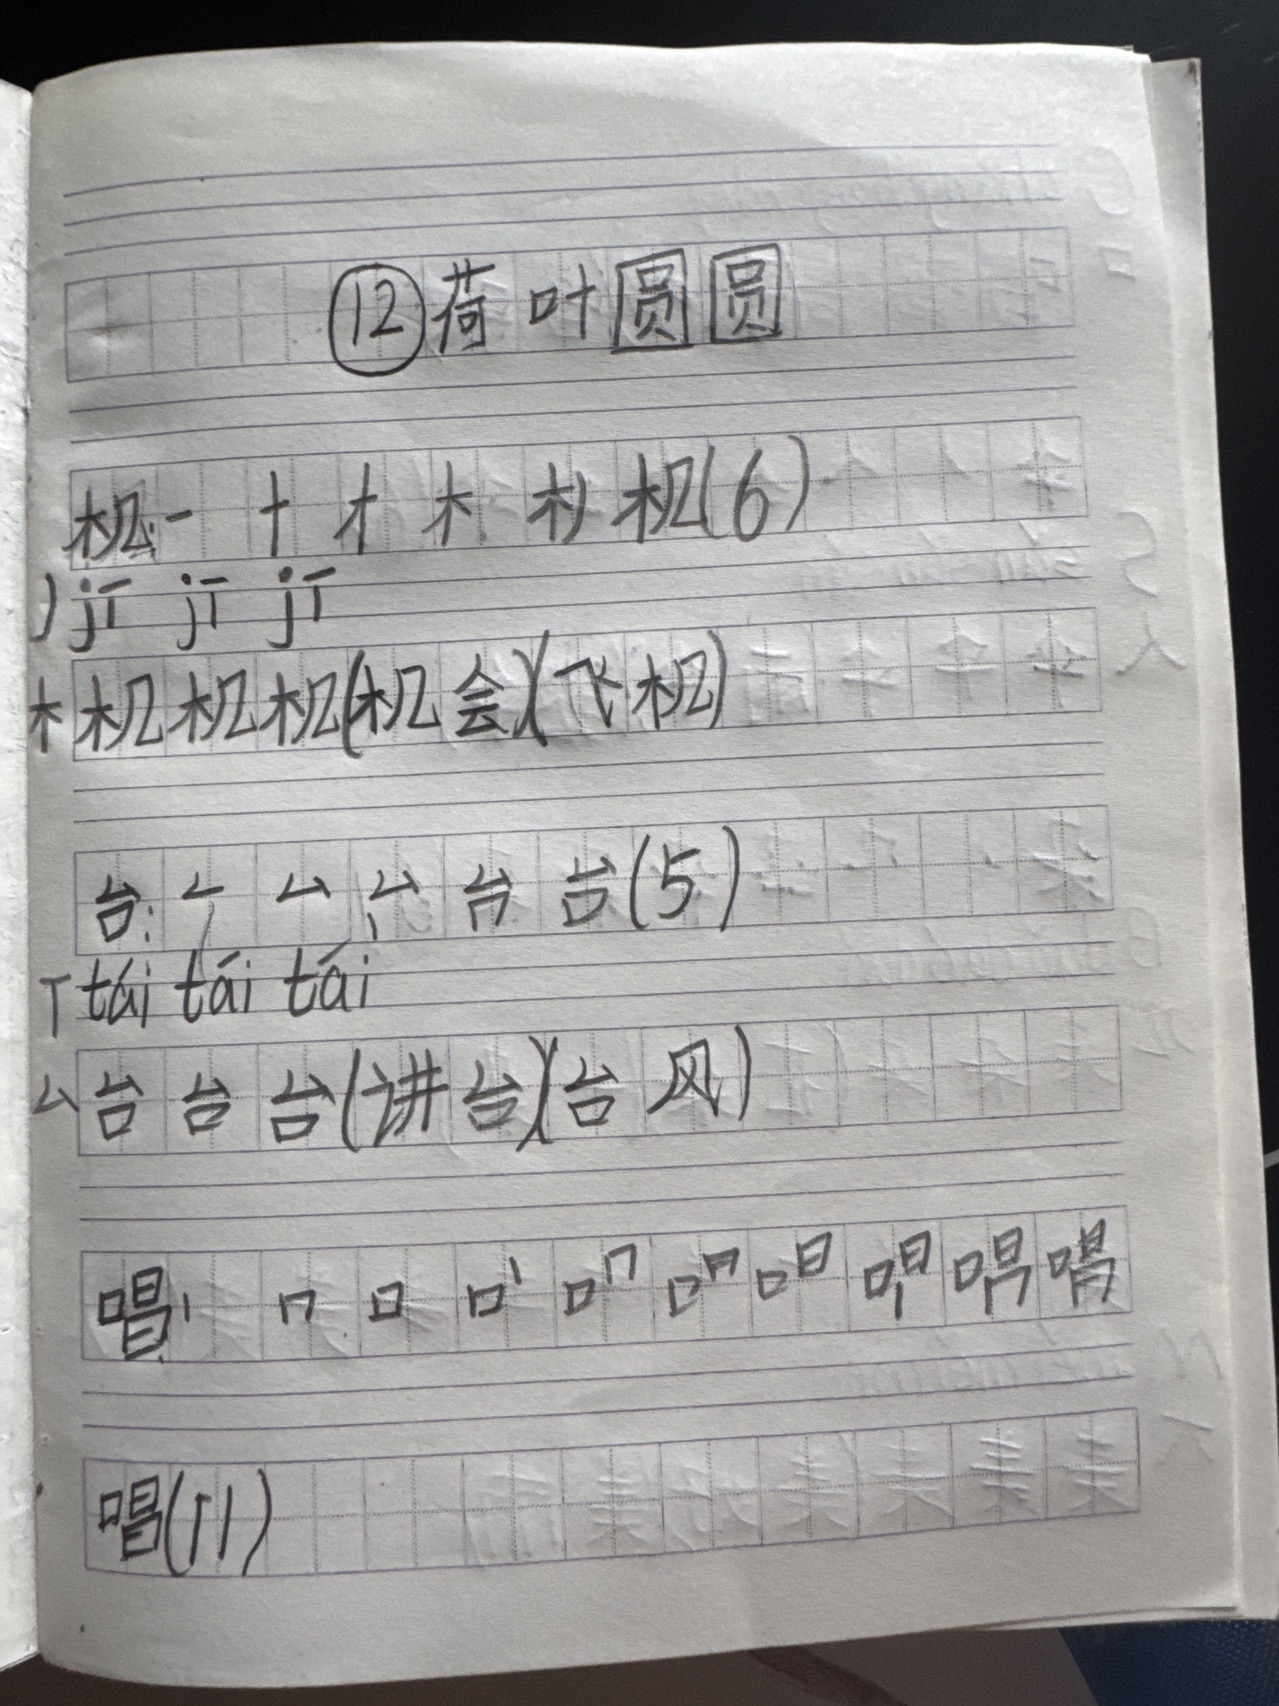 ⑫荷叶圆圆
机:一十才木朳机(6)
J jī jī jī
木 机机机(机会)(飞机)
台:厶台台(5)
T tái tái tái
厶 台台台(讲台)(台风)
唱:丨口唱
唱(11)